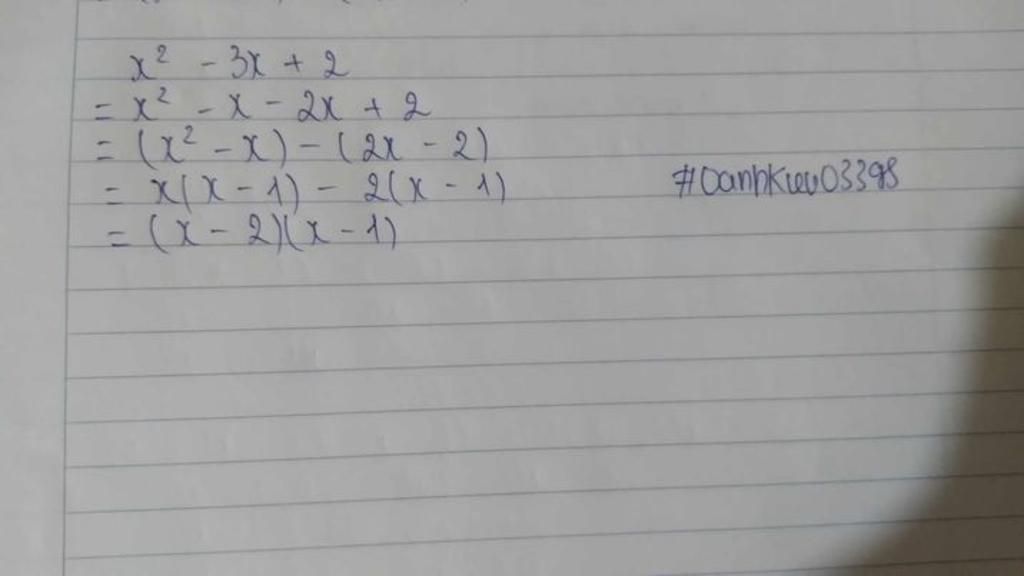 x² - 3x + 2
= x² - x - 2x + 2
= (x² - x) - (2x - 2)
= x(x - 1) - 2(x - 1)
#OanhKieu03398
= (x - 2)(x - 1)